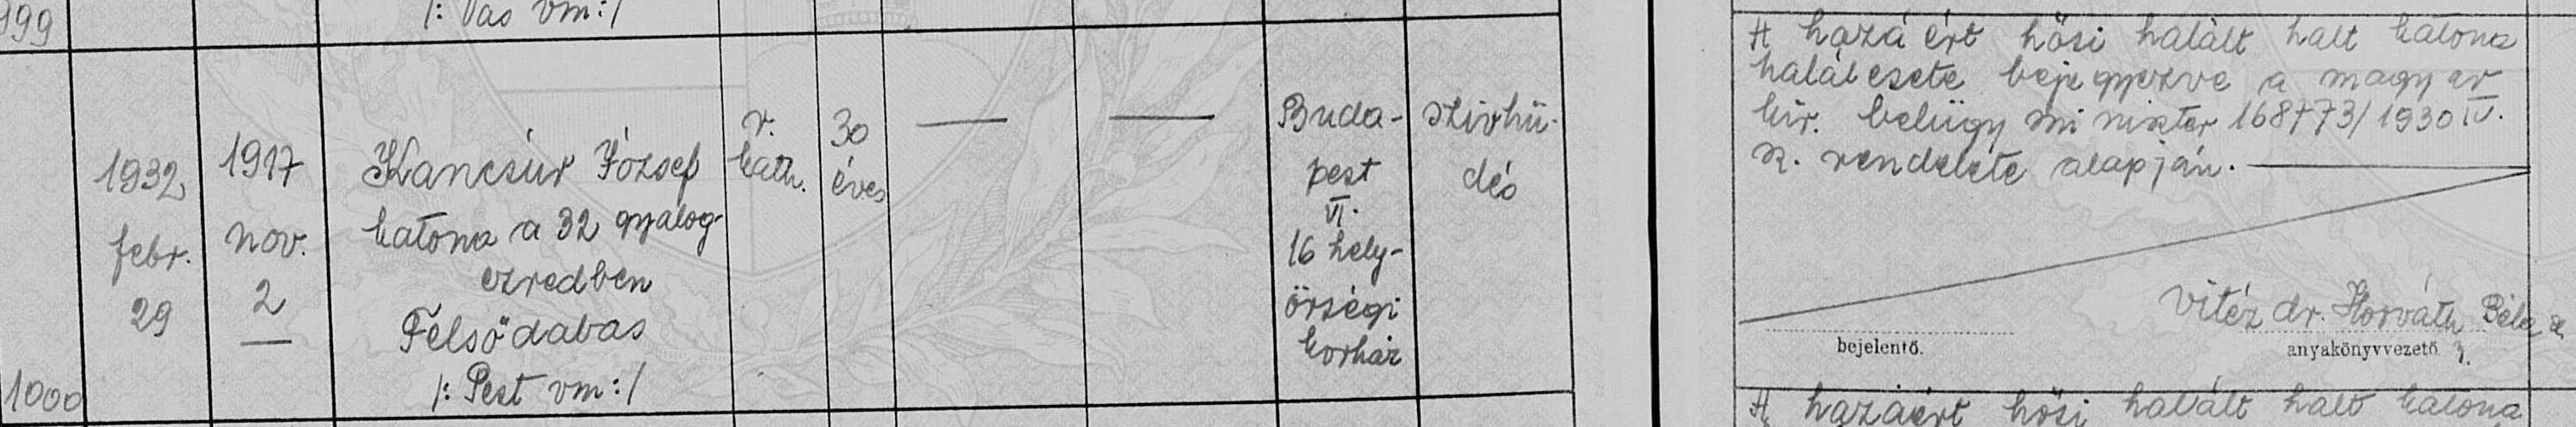 999
/: Vas vm:/
1000
1932
febr.
29
1917
nov.
2
Kancsúr József
katona a 32 gyalog-
ezredben
Felsődabas
/: Pest vm:/
r.
kath.
30
éves
Buda-
pest
VI.
16 hely-
őrségi
kórház
szivhü-
dés
A hazáért hősi halált halt katona
halálesete bejegyezve a magyar
kir. belügyminiszter 168773/1930 IV.
sz. rendelete alapján.
vitéz dr. Horváth Béla
bejelentő.
anyakönyvvezető
A hazáért hősi halált halt katona